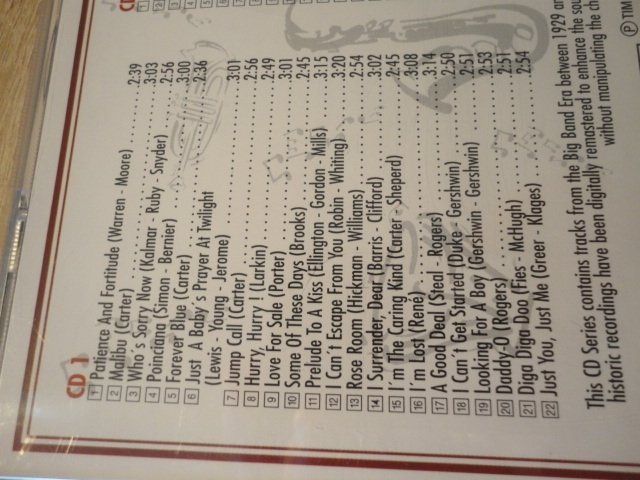 CD 1
1 Patience And Fortitude (Warren - Moore) 2:39
2 Malibu (Carter) 3:03
3 Who´s Sorry Now (Kalmar - Ruby - Snyder) 2:56
4 Poinciana (Simon - Bernier) 3:00
5 Forever Blue (Carter) 2:36
6 Just A Baby´s Prayer At Twilight
(Lewis - Young - Jerome) 3:01
7 Jump Call (Carter) 2:56
8 Hurry, Hurry ! (Larkin) 2:49
9 Love For Sale (Porter) 3:01
10 Some Of These Days (Brooks) 2:45
11 Prelude To A Kiss (Ellington - Gordon - Mills) 3:15
12 I Can´t Escape From You (Robin - Whiting) 3:20
13 Rose Room (Hickman - Williams) 2:54
14 I Surrender, Dear (Barris - Clifford) 3:02
15 I´m The Caring Kind (Carter - Sheperd) 2:45
16 I´m Lost (René) 3:08
17 A Good Deal (Steal - Rogers) 3:14
18 I Can´t Get Started (Duke - Gershwin) 2:50
19 Looking For A Boy (Gershwin - Gershwin) 2:51
20 Daddy-O (Rogers) 2:53
21 Diga Diga Doo (Fies - McHugh) 2:51
22 Just You, Just Me (Greer - Klages) 2:54
This CD Series contains tracks from the Big Band Era between 1929 an
historic recordings have been digitally remastered to enhance the sou
without manipulating the ch
Ⓟ TIM